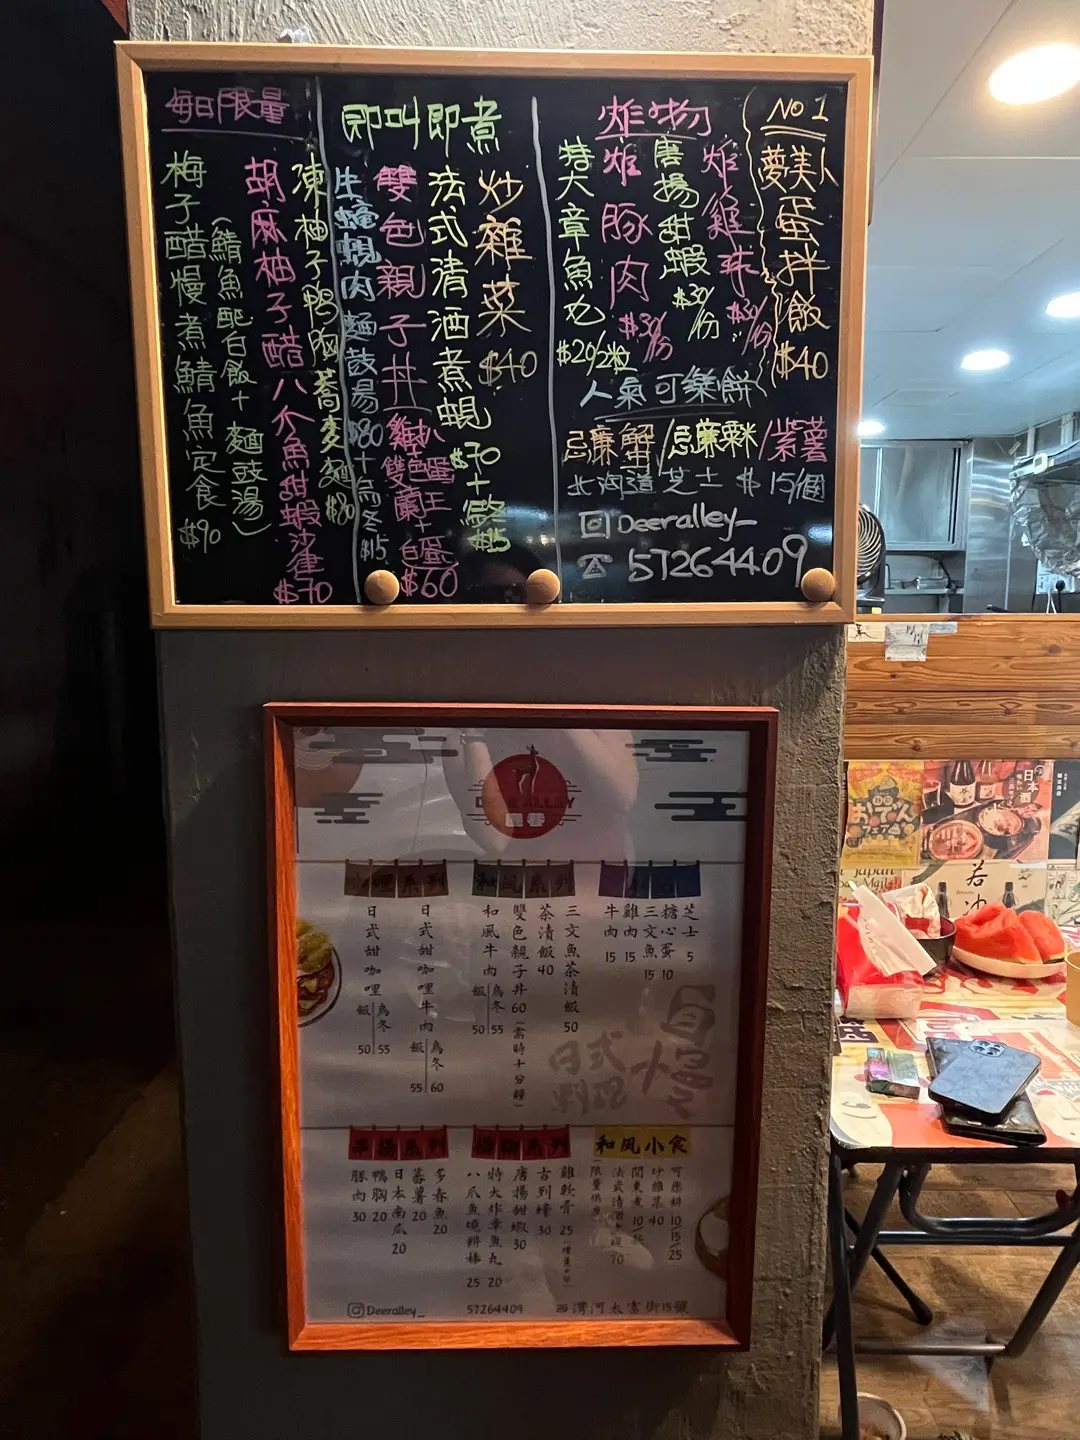 No 1
夢美小
蛋拌飯
$40
炸物
炸雞珠
$30/份
唐揚甜蝦
$30/份
炸豚肉
$30/份
特大章魚丸
$20/2粒
人氣可樂餅
忌廉蟹/忌廉粟米/紫薯
北海道芝士 $15/個
Deeralley_
57264409
即叫即煮
炒雜菜
$40
法式清酒煮蜆
$70+烏冬$15
雙色親子丼
$60
牛
蜆肉麵豉湯
$80+烏冬
$15
每日限量
凍柚子鴨胸蕎麥麵
$80
胡麻柚子醋八爪魚甜蝦沙律
$70
梅子醋慢煮鯖魚定食
(鯖魚配白飯+麵豉湯)
$90
ALLEY
鹿巷
咖哩系列
日式甜咖哩牛肉
飯 55
烏冬 60
日式甜咖哩
飯 50
烏冬 55
和風系列
三文魚茶漬飯 50
茶漬飯 40
雙色親子丼 60 (需時十分鐘)
和風牛肉
飯 50
烏冬 55
芝士 5
糖心蛋 10
三文魚 15
雞肉 15
牛肉 15
日式料理
慢
串燒系列
多春魚 20
蕃薯 20
日本南瓜 20
鴨胸 20
豚肉 30
雞軟骨 25
吉列蠔 30
唐揚甜蝦 30
特大炸章魚丸 20
八爪魚燒餅棒 25
和風小食
可樂餅 10/15/25
炒雜菜 40
関東煮 10/15
法式清酒煮蜆 70
(限量供應)
Deeralley_
57264409
西灣河太富街15號
日本酒
おでん
フェア
若
Japan